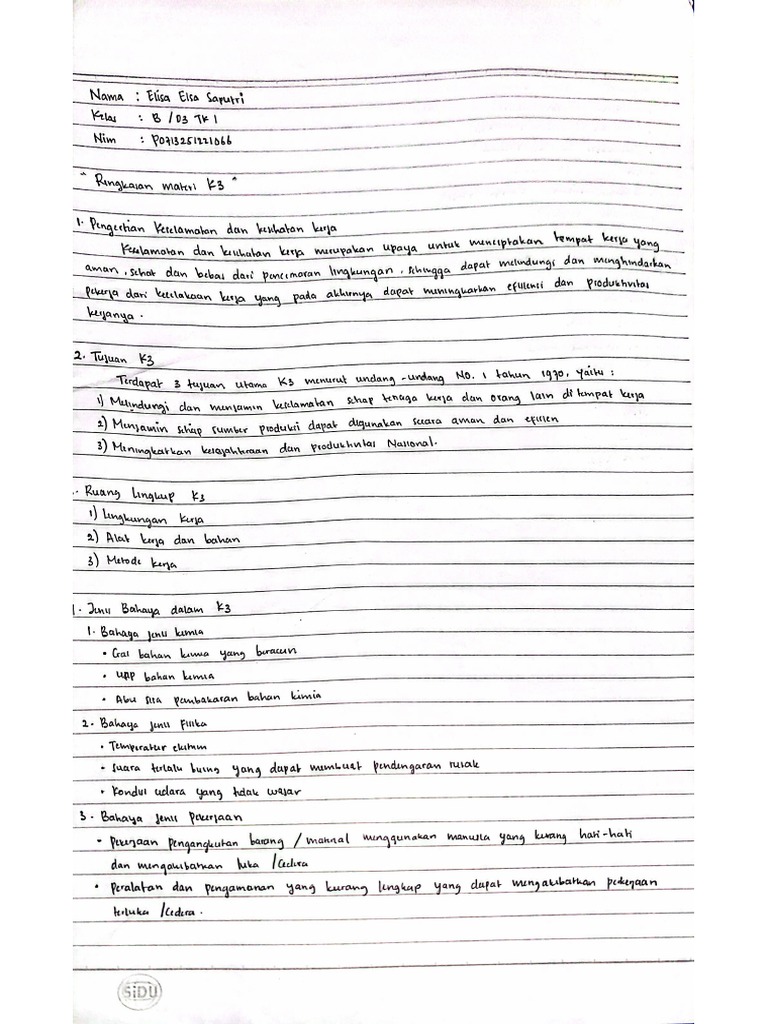 Nama : Elisa Elsa Saputri
Kelas : B / D3 TK 1
Nim : P0713251221066
"Ringkasan materi K3"
1. Pengertian Keselamatan dan kesehatan kerja
Keselamatan dan kesehatan kerja merupakan upaya untuk menciptakan tempat kerja yang
aman, sehat dan bebas dari pencemaran lingkungan, sehingga dapat melindungi dan menghindarkan
pekerja dari kecelakaan kerja yang pada akhirnya dapat meningkatkan efisiensi dan produktivitas
kerjanya.
2. Tujuan K3
Terdapat 3 tujuan utama K3 menurut undang-undang No. 1 tahun 1970, yaitu :
1) Melindungi dan menjamin keselamatan setiap tenaga kerja dan orang lain di tempat kerja
2) Menjamin setiap sumber produksi dapat digunakan secara aman dan efisien
3) Meningkatkan kesejahteraan dan produktivitas Nasional.
. Ruang lingkup K3
1) Lingkungan kerja
2) Alat kerja dan bahan
3) Metode kerja
. Jenis Bahaya dalam K3
1. Bahaya jenis kimia
• Gas bahan kimia yang beracun
• Uap bahan kimia
• Abu sisa pembakaran bahan kimia
2. Bahaya jenis fisika
• Temperatur ekstrim
• Suara terlalu bising yang dapat membuat pendengaran rusak
• Kondisi udara yang tidak wajar
3. Bahaya jenis pekerjaan
• Pekerjaan pengangkutan barang / material menggunakan manusia yang kurang hati-hati
dan mengakibatkan luka / cedera
• Peralatan dan pengamanan yang kurang lengkap yang dapat mengakibatkan pekerjaan
terluka / cedera.
SiDU